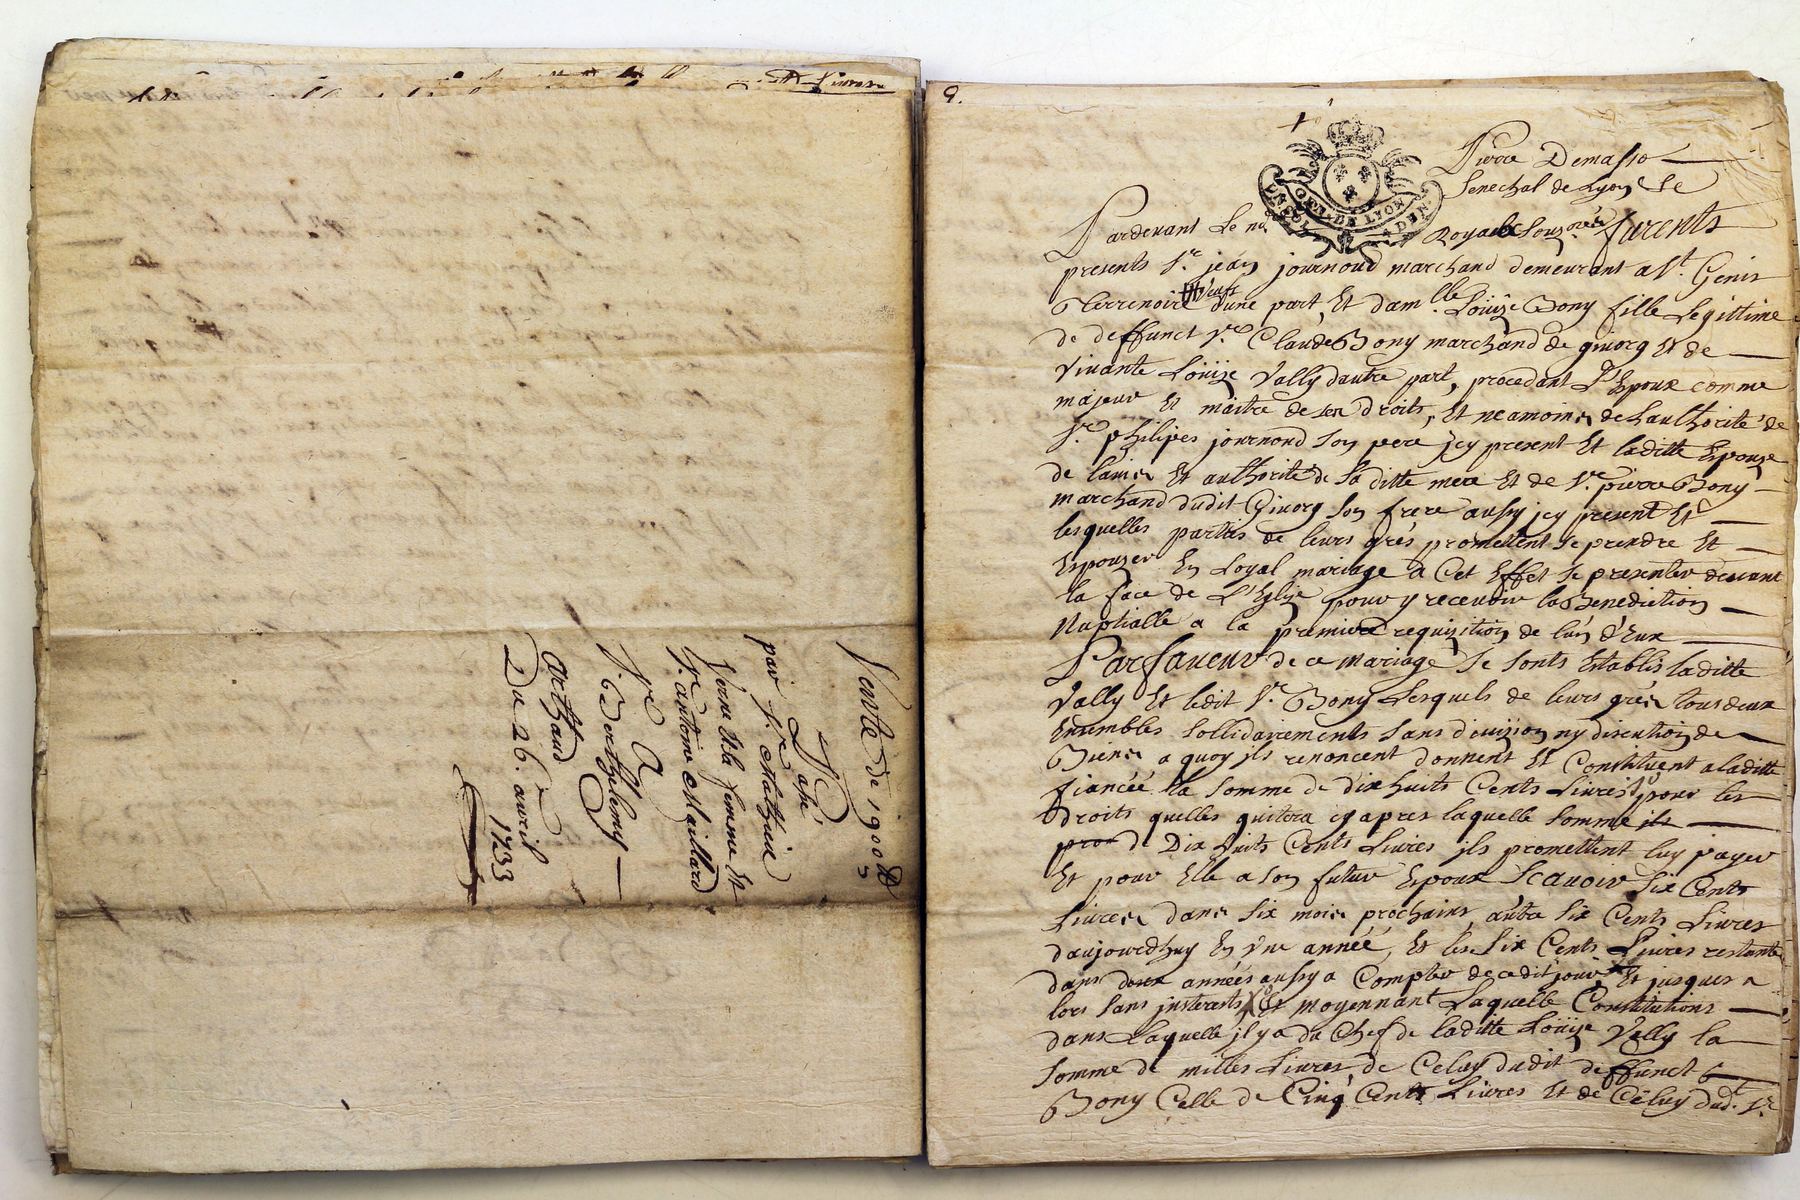 Livres
Vente de 1900 #
passé
par Sr. Mathieu
Verne et la femme et
Sr. antoine Maillard
A
Sr. Berthlemy
arthaud
Du 26. avril
1733
9.
Pierre Demasso
Senechal de Lyon Le
GEN. DE LYON
Pardevant Le no.re Royal Souz.né furents
presents Sr. jean journoud marchand demeurant a St. Genis
Terrenoire veuf dune part, Et dam.lle Loüize Bony fille Legittime
de deffunct Sr. Claude Bony marchand de givorg Et de
vivante Loüize Vally dautre part, procedant L'Epoux comme
majeur Et maitre de ses droits, Et neamoins de Lauthorité de
Sr. philipes journoud son pere jcy present Et laditte Epouze
de lavis Et authorité de sa ditte mere Et de Sr. pierre Bony
marchand dudit Givorg son frere aussy jcy present Et
lesquelles parties de leurs grés promettent se prendre Et
Espouzer En Loyal mariage a Cet Effet se presenter devant
la face de L'Eglize pour y recevoir la Benediction
Nuptialle a la premiere requizition de lun d'Eux
Par faveur de ce mariage se sonts Establis laditte
Vally Et ledit Sr. Bony Lesquels de leurs grés tous deux
Ensembles sollidairements sans divizion ny discution de
Biens a quoy ils renoncent donnent Et Constituent a laditte
fiancéé la somme de dix huits Cents Livres pour les
droits quelles quitera cy apres laquelle somme ils
de Dix huits Cents Livres ils promettent luy payer
Et pour Elle a son futur Epoux Scavoir Six Cents
Livres dans six mois prochains, autre six Cents Livres
daujourdhuy En vne année, Et les Six Cents Livres restante
dans deux années aussy a Compter de cedit jour, Et jusques a
lors sans jnterests, Et moyennant Laquelle Constitutions
dans Laquelle il y a du Chef de laditte Loüize Vally la
somme de milles Livres, de Celuy dudit deffunct
Bony Celle de Cinq Cents Livres Et de Celuy dud.t Sr.